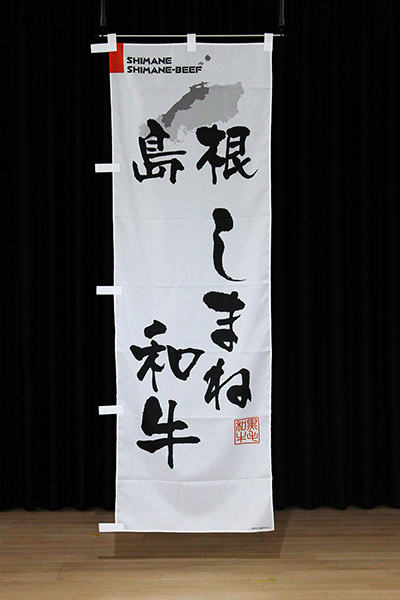 SHIMANE
SHIMANE-BEEF
島根
しまね
和牛
黒毛
和牛